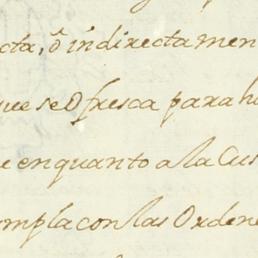 cta, ô indirectamen
que se Ofresca para h
e enquanto a la Cus
ompla con las Ordene